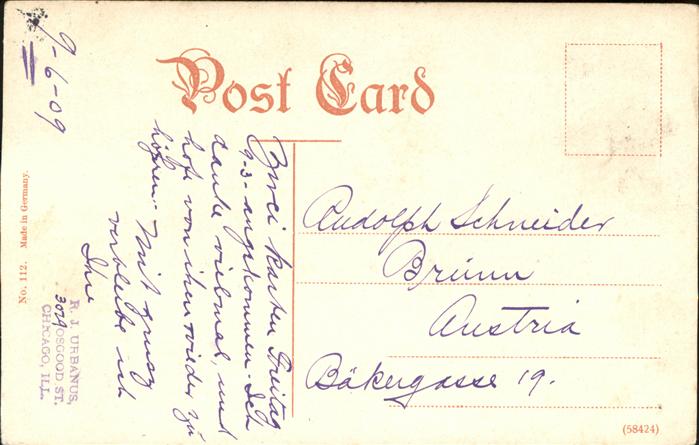 9-6-09
Post Card
Zwei Karten Freitag
9-3- angekommen. Ich
danke vielmal, und
hofe von ihen wieder zu
hören. Mit gruss
verbleibe ich
Ihr
R. J. URBANUS,
3029 OSGOOD ST.
CHICAGO, ILL.
No. 112. Made in Germany.
Rudolph Schneider
Brünn
Austria
Bäkergasse 19.
(58424)